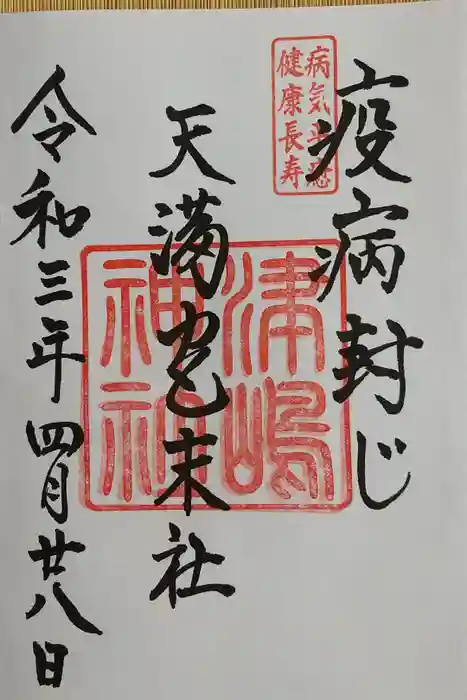 疫病封じ
病気平癒
健康長寿
天満宮末社
津嶋
神社
令和三年四月廿八日